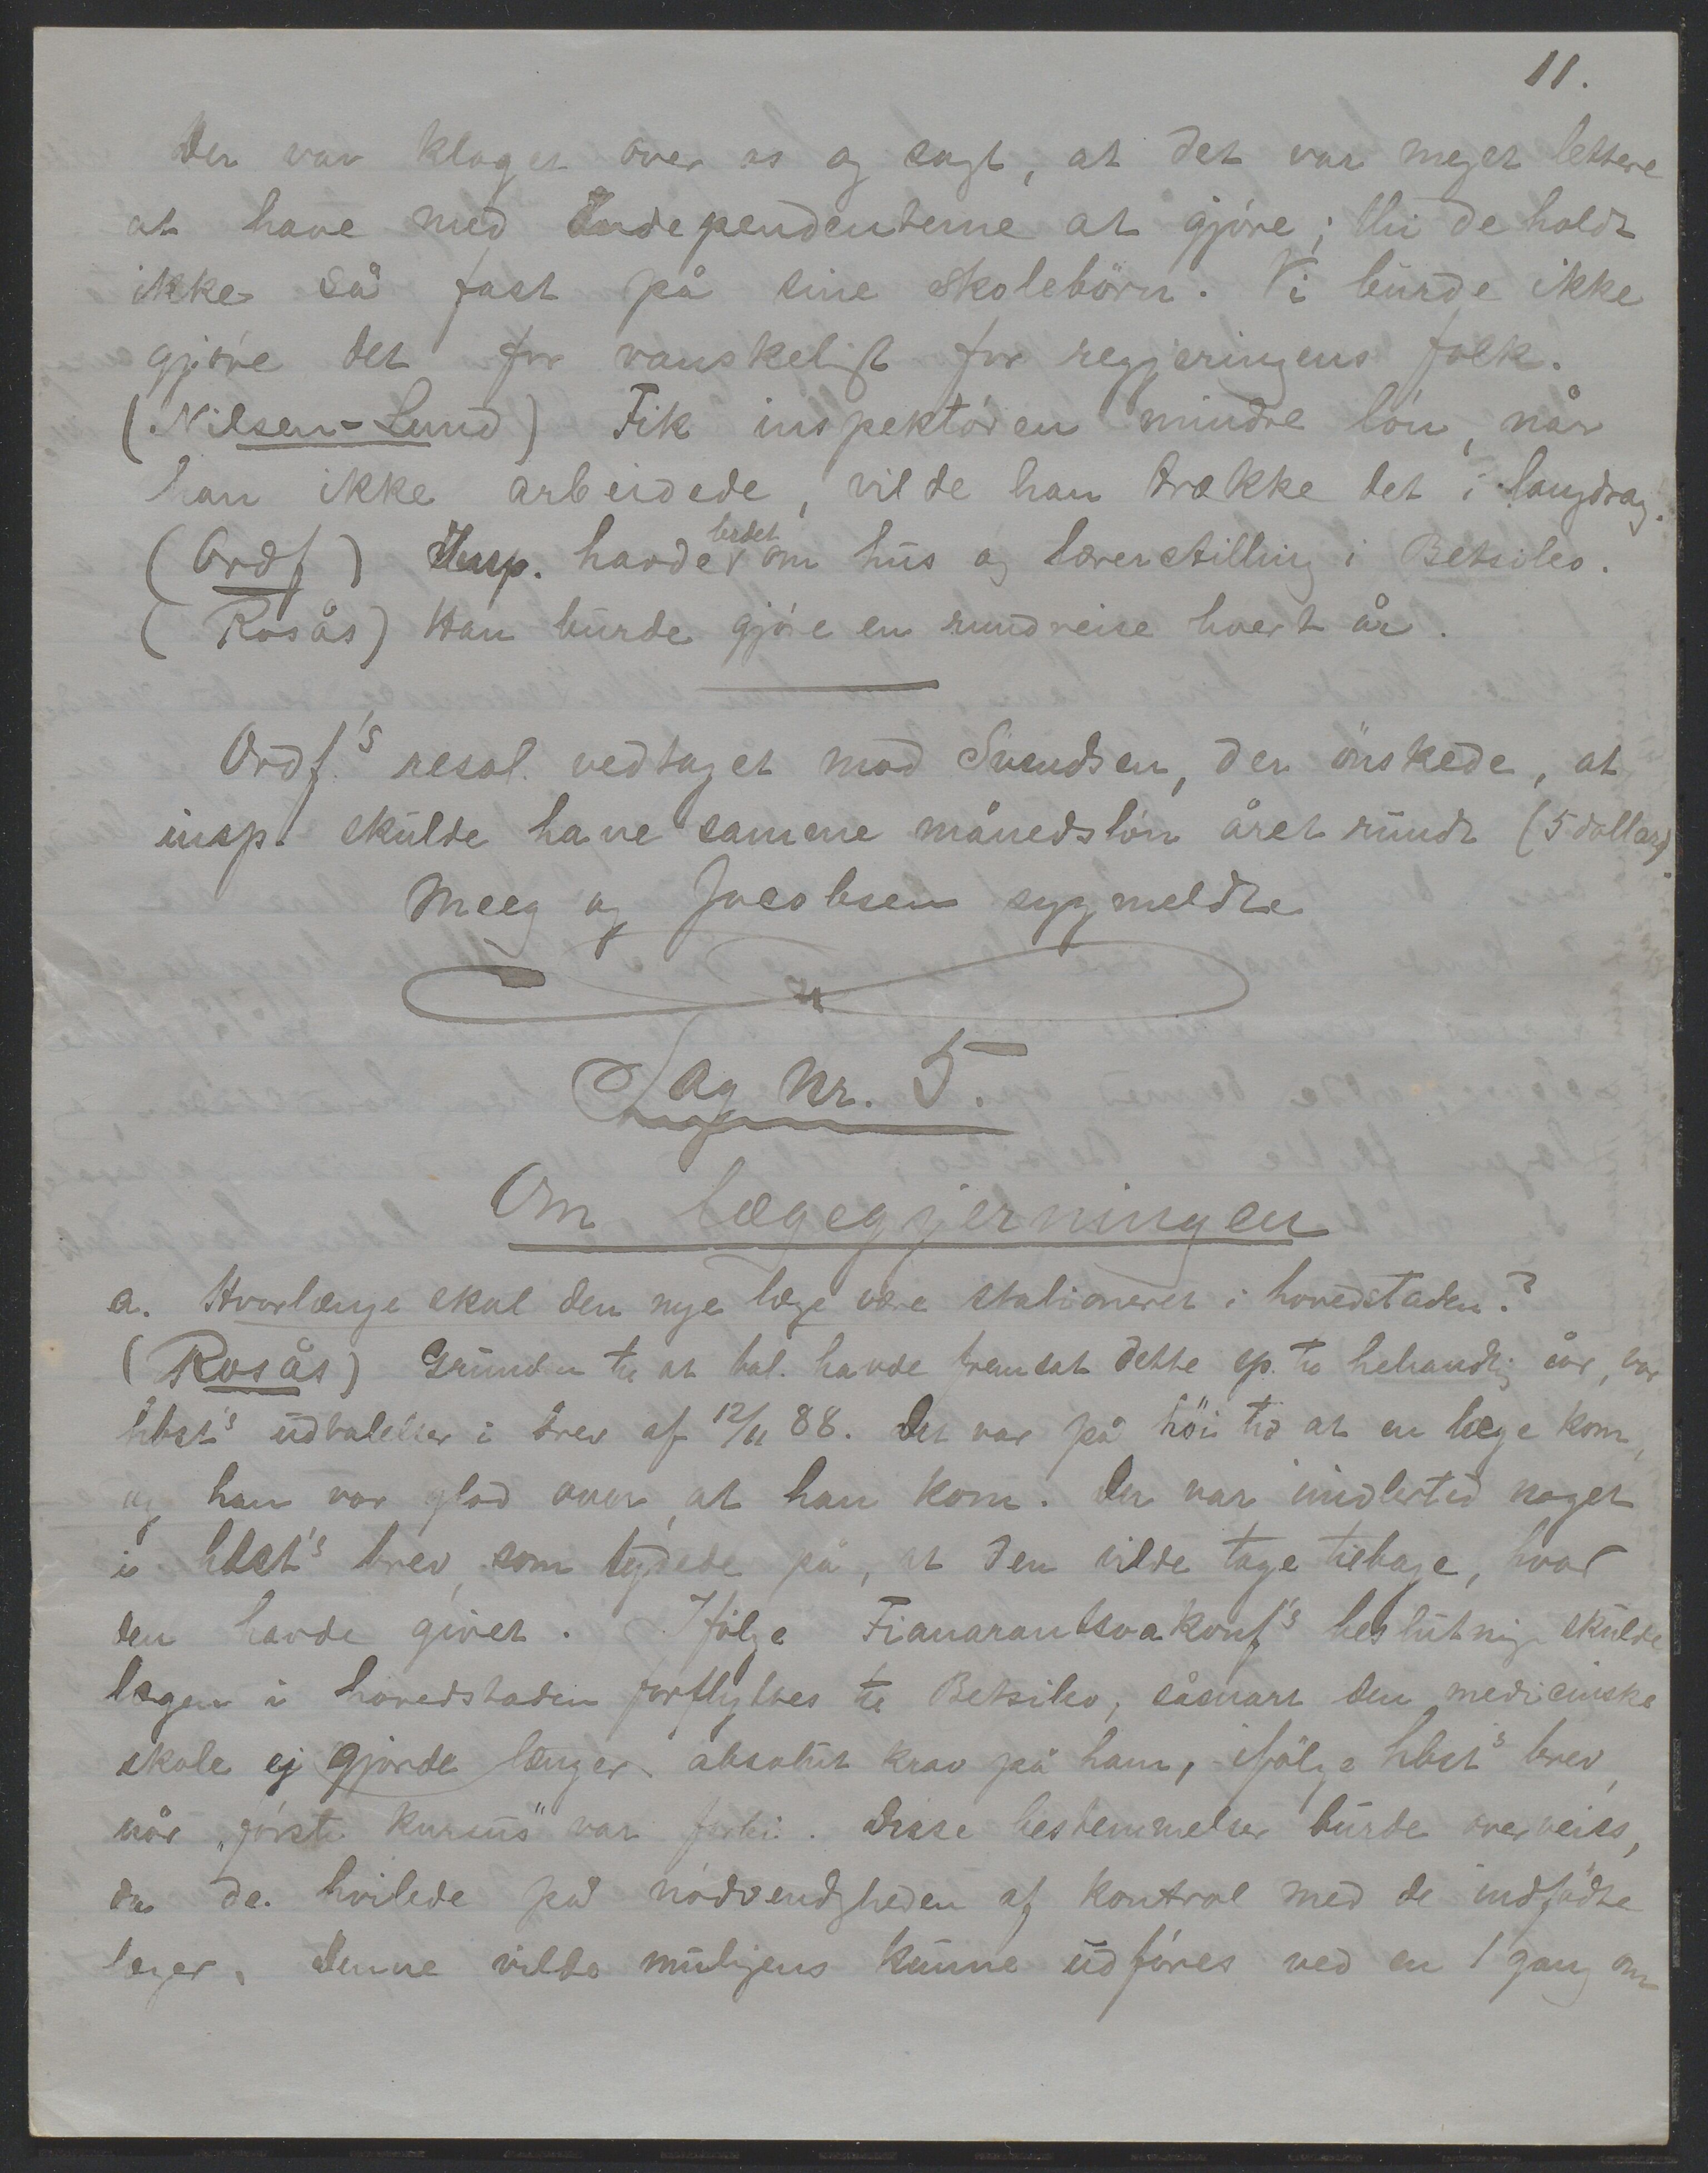 11.
Der var klaget over os og sagt, at det var meget lettere
at have med Independenterne at gjöre; thi de holdt
ikke så fast på sine skolebörn. Vi burde ikke
gjöre det for vanskeligt for regjeringens folk.
(Nilsen-Lund) Fik inspektören mindre lön, når
han ikke arbeidede, vilde han trække det i langdrag.
(Ordf) Insp. havde bedet om hus og lærerstilling i Betsileo.
(Rosås) Han burde gjöre en rundreise hvert år.
Ordf.'s resol. vedtaget mod Svendsen, der önskede, at
insp. skulde have samme månedslön året rundt (5 dollars).
Meeg og Jacobsen sygmeldte
Sag Nr. 5.
Om lægegjerningen
a. Hvorlænge skal den nye læge være stationeret i hovedstaden?
(Rosås) Grunden til at had fremsat dette sp. til behandlig
hbst's udtalelser i brev af 12/11 88. Det var på höi tid at en læge kom,
og han var glad over, at han kom. Der var imidlertid noget
i hbst's brev, som tydede på, at den vilde tage tilbage, hvad
den havde givet. Ifölge Fianarantsoakonf's beslutning skulde
lægen i hovedstaden forflyttes til Betsileo, såsnart den medicinske
skole ej gjorde længer absolut krav på ham, ifölge hbst's brev,
når "förste kursus" var forbi. Disse bestemmelser burde overveies,
da de hvilede på nödvendigheden af kontrol med de indfödte
læger. Denne vilde muligens kunne udföres ved en 1 gang om